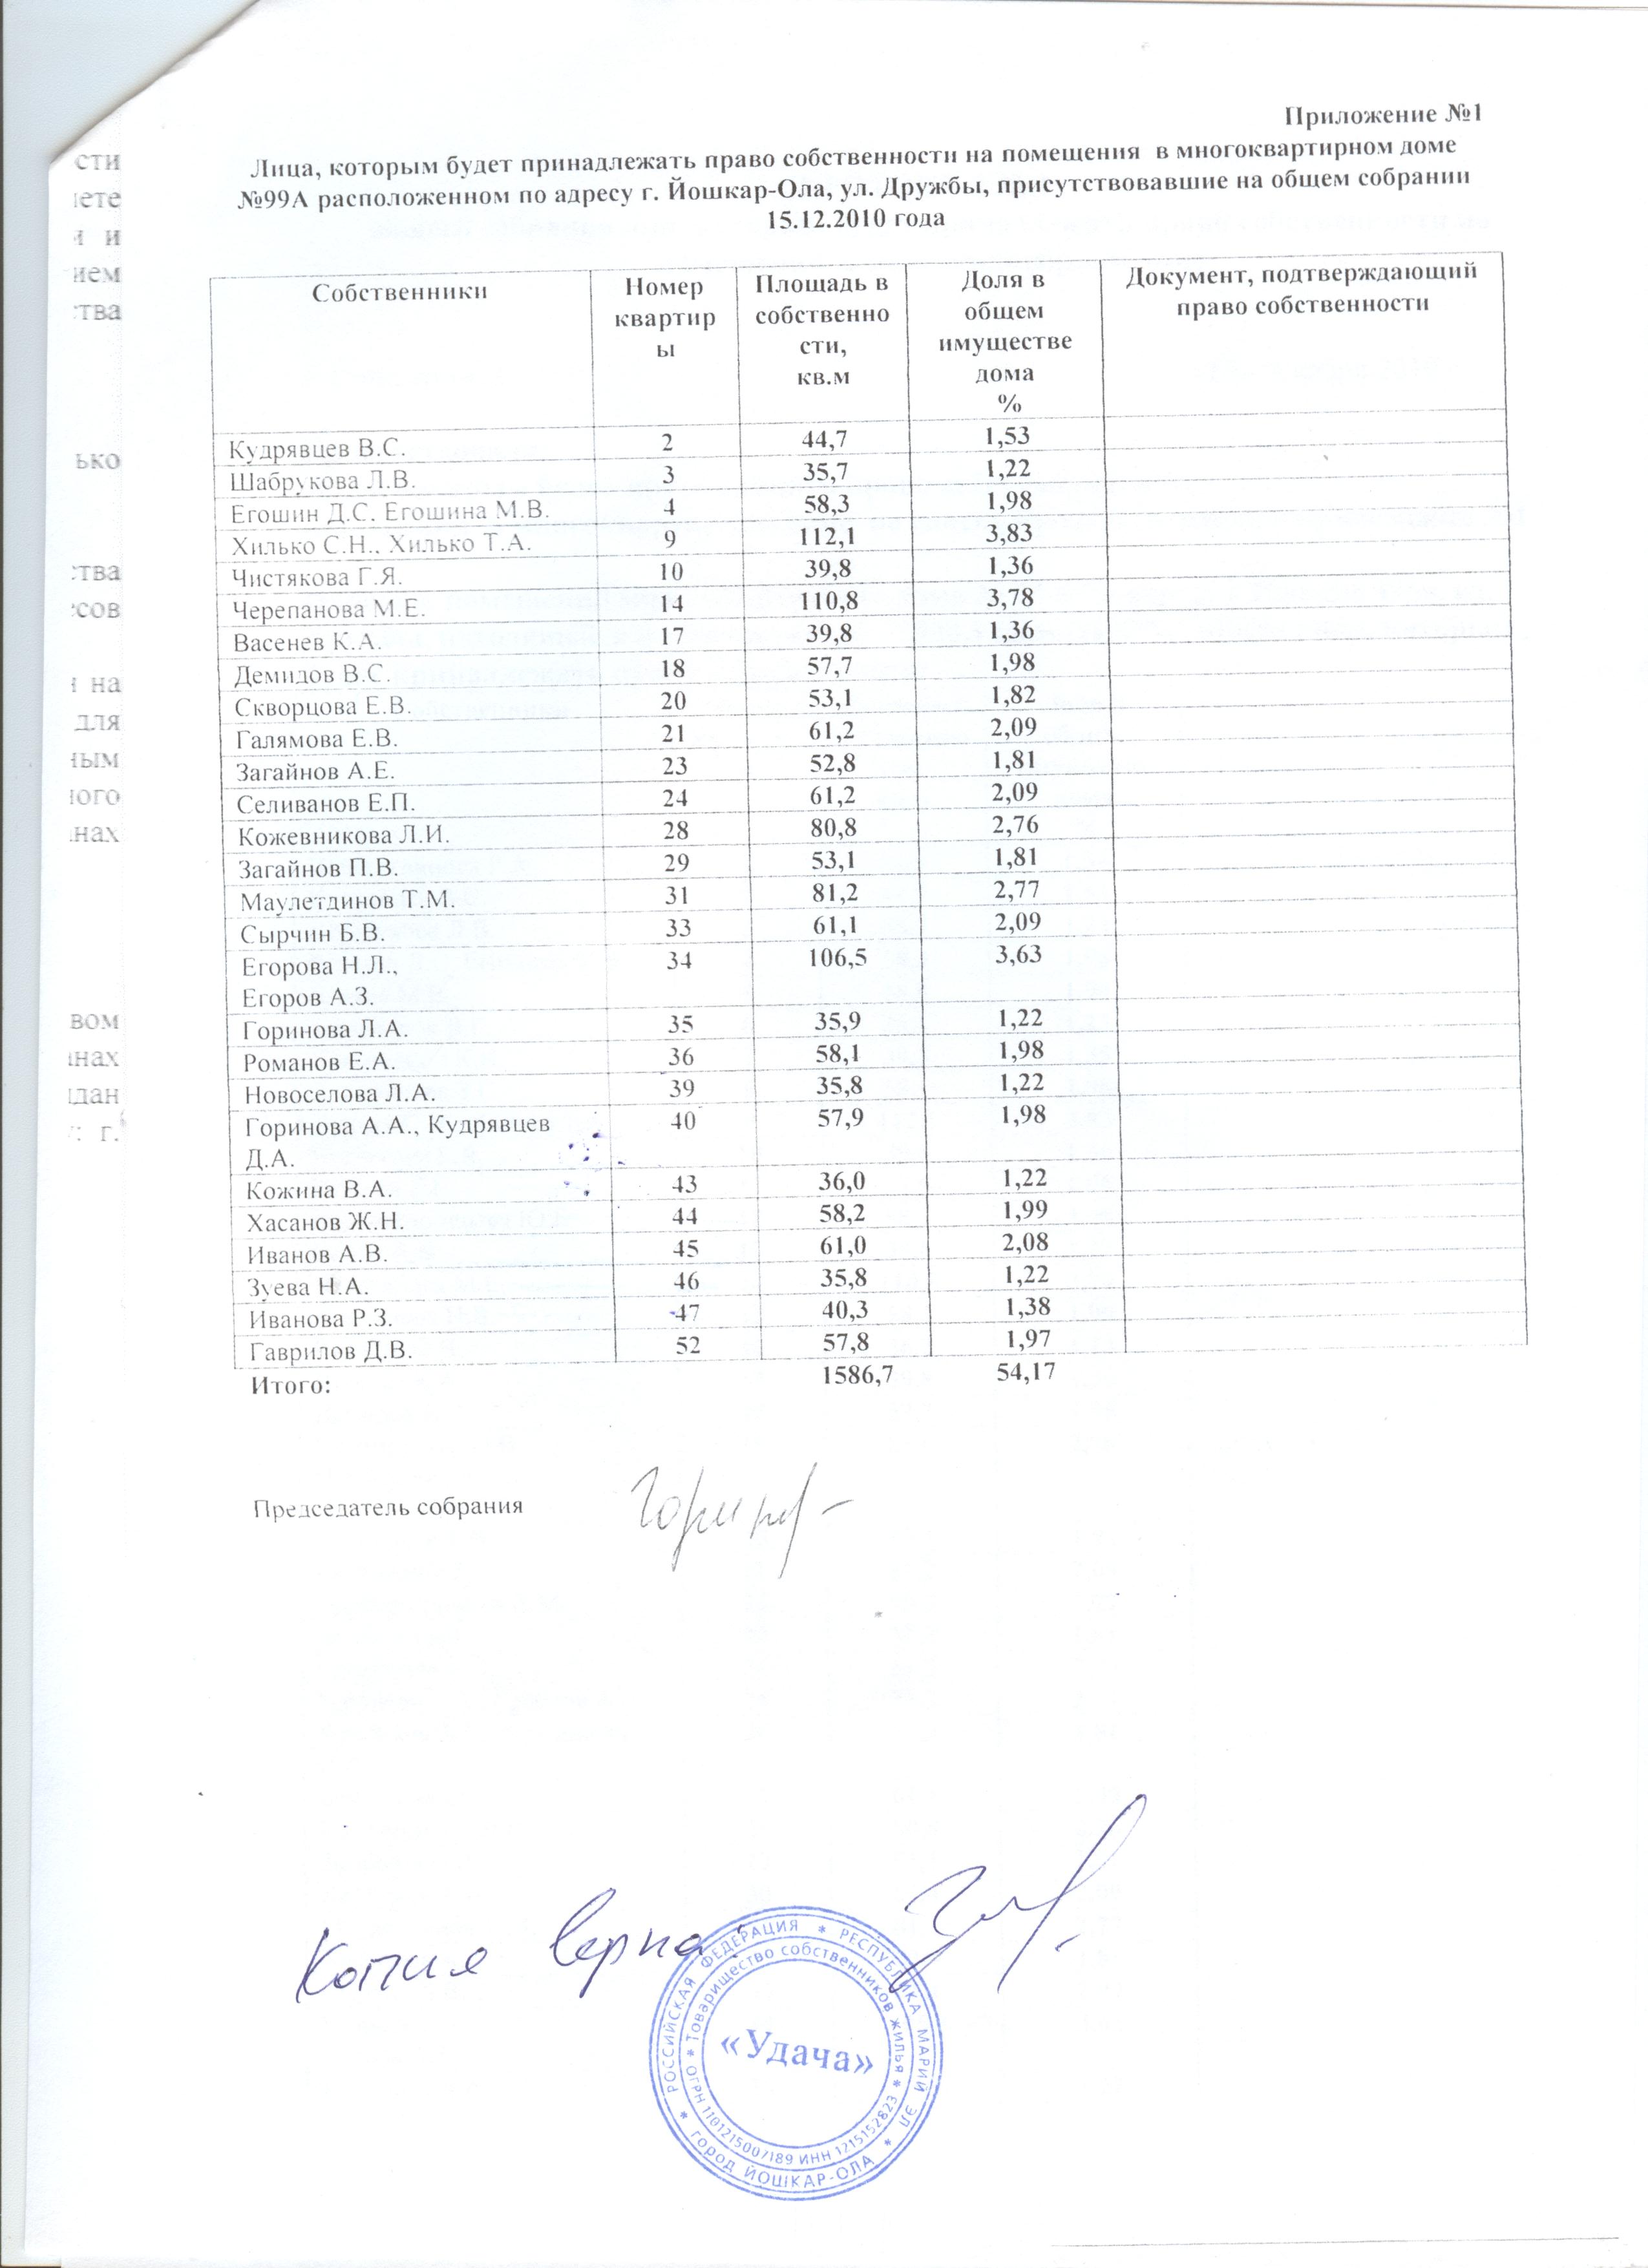 Приложение №1
Лица, которым будет принадлежать право собственности на помещения в многоквартирном доме
№99А расположенном по адресу г. Йошкар-Ола, ул. Дружбы, присутствовавшие на общем собрании
15.12.2010 года
Собственники Номер квартиры Площадь в собственности, кв.м Доля в общем имуществе дома % Документ, подтверждающий право собственности
Кудрявцев В.С. 2 44,7 1,53
Шабрукова Л.В. 3 35,7 1,22
Егошин Д.С. Егошина М.В. 4 58,3 1,98
Хилько С.Н., Хилько Т.А. 9 112,1 3,83
Чистякова Г.Я. 10 39,8 1,36
Черепанова М.Е. 14 110,8 3,78
Васенев К.А. 17 39,8 1,36
Демидов В.С. 18 57,7 1,98
Скворцова Е.В. 20 53,1 1,82
Галямова Е.В. 21 61,2 2,09
Загайнов А.Е. 23 52,8 1,81
Селиванов Е.П. 24 61,2 2,09
Кожевникова Л.И. 28 80,8 2,76
Загайнов П.В. 29 53,1 1,81
Маулетдинов Т.М. 31 81,2 2,77
Сырчин Б.В. 33 61,1 2,09
Егорова Н.Л., 34 106,5 3,63
Егоров А.З.
Горинова Л.А. 35 35,9 1,22
Романов Е.А. 36 58,1 1,98
Новоселова Л.А. 39 35,8 1,22
Горинова А.А., Кудрявцев 40 57,9 1,98
Д.А.
Кожина В.А. 43 36,0 1,22
Хасанов Ж.Н. 44 58,2 1,99
Иванов А.В. 45 61,0 2,08
Зуева Н.А. 46 35,8 1,22
Иванова Р.З. 47 40,3 1,38
Гаврилов Д.В. 52 57,8 1,97
Итого: 1586,7 54,17
Председатель собрания
Копия верна
* РОССИЙСКАЯ ФЕДЕРАЦИЯ * РЕСПУБЛИКА МАРИЙ ЭЛ * город ЙОШКАР-ОЛА
* Товарищество собственников жилья * ОГРН 1101215007189 ИНН 1215152823
«Удача»
сти
ием
ства
ько
ства
сов
на
для
ным
ного
нах
вом
нах
дан
г.